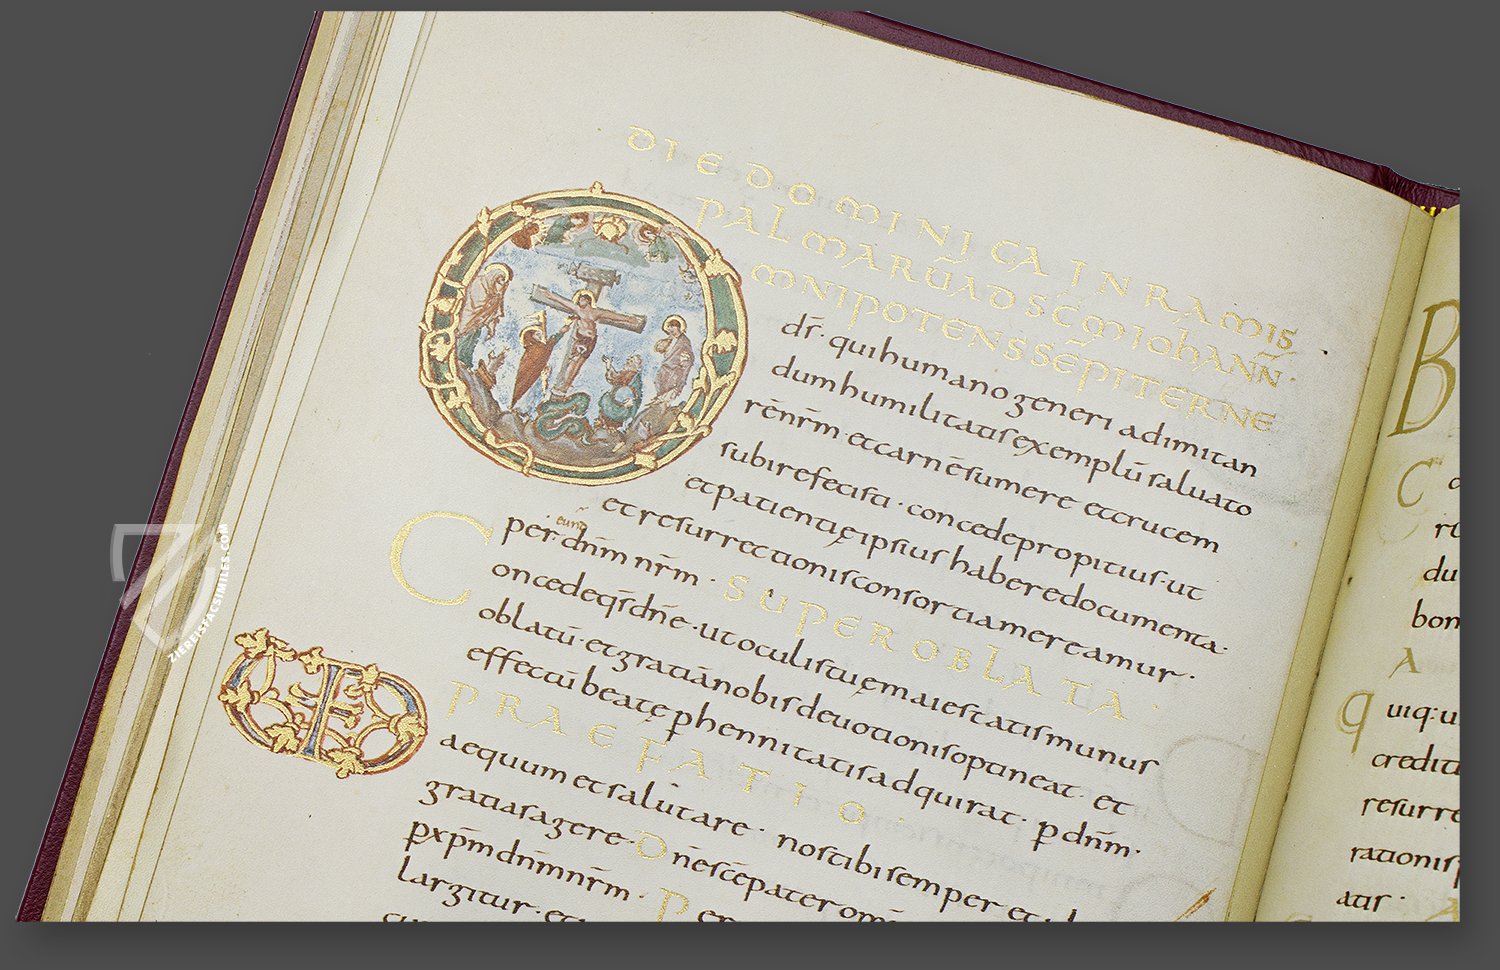 DIE DOMINICA IN RAMIS
PALMARŪ AD SC̄M IOHANN̄
OMNIPOTENS SEMPITERNE
d̄s. qui humano generi ad imitan
dum humilitatis exemplū saluato
rē nr̄m et carnē sumere et crucem
subire fecisti. concede propitius. ut
et patientię ipsius habere documenta.
et resurrectionis consortia mereamur.
per eund̄ dn̄m nr̄m. SUPER OBLATA.
Concede qs̄ dn̄e. ut oculis tuę maiestatis munus
oblatū. et gratiā nobis deuotionis optineat. et
effectū beatę phennitatis adquirat. p dn̄m.
PRAEFATIO.
aequum et salutare. nos tibi semper et
gratias agere. Dn̄e sc̄e pater om̄
p xp̄m dn̄m nr̄m. Per
largitur. et
B
C
du
bon
A
quiq: u
crediti
resurre
rationis
atis.
ZIEREISFACSIMILES.COM